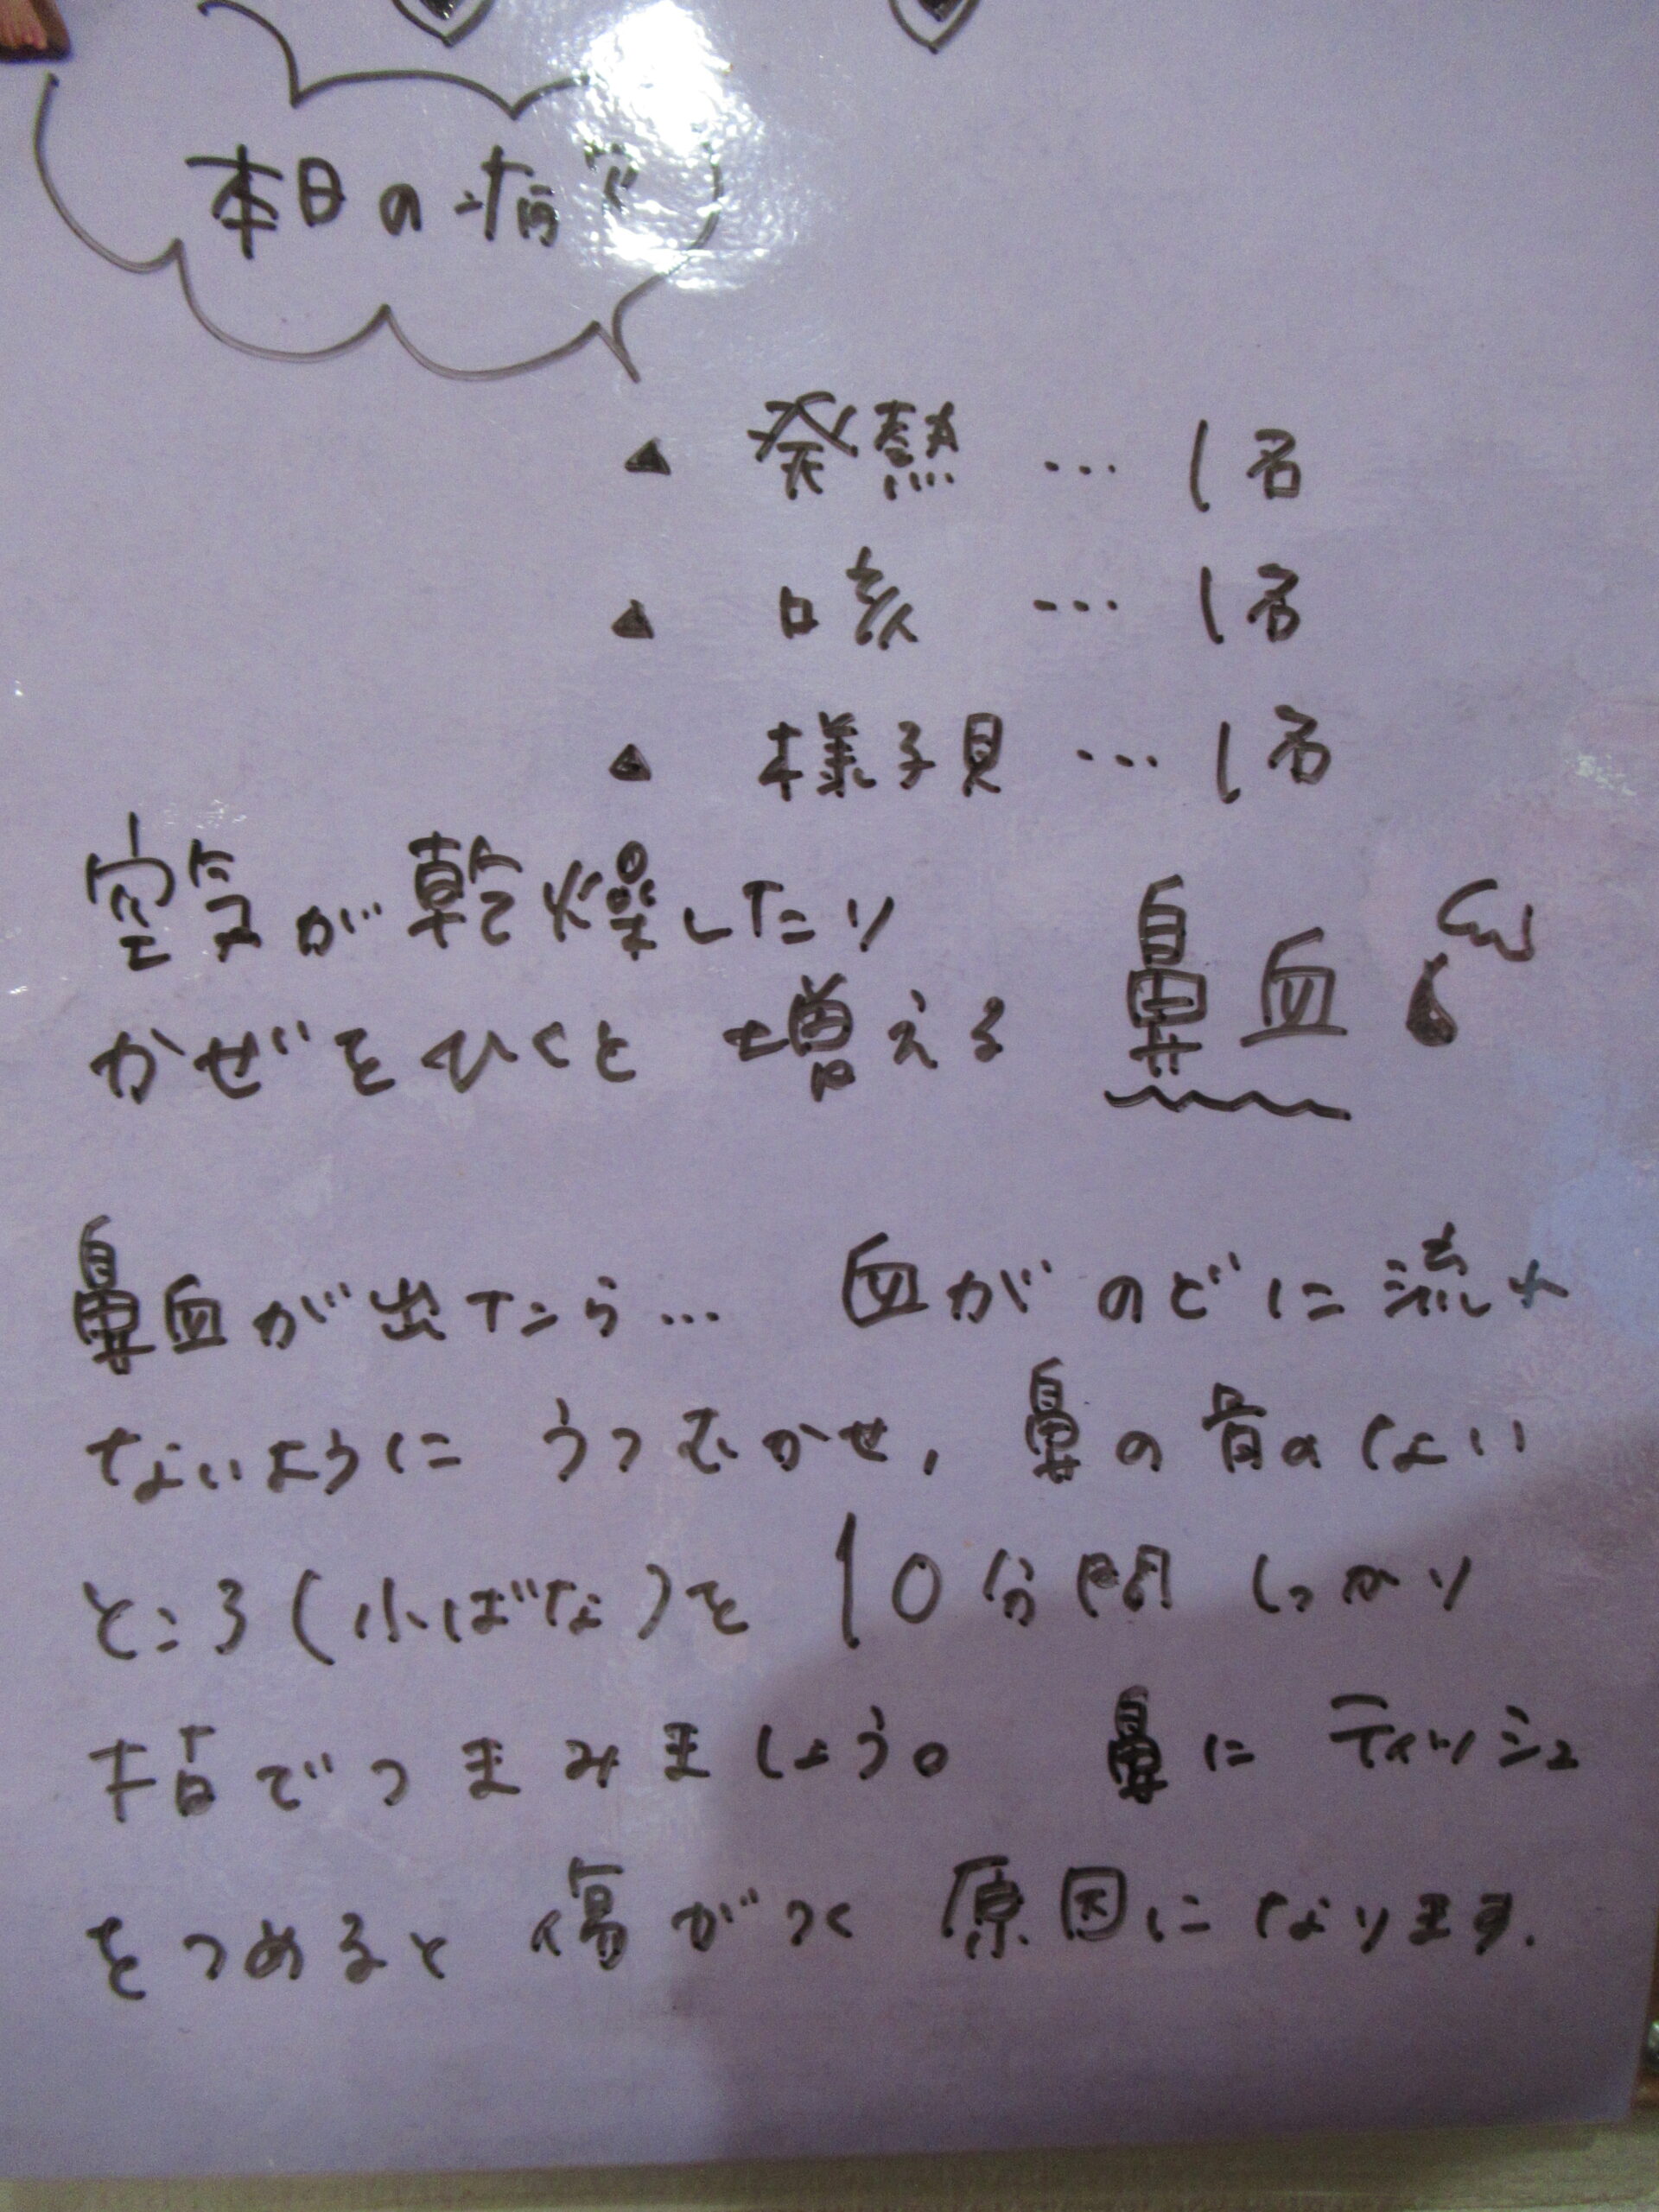 本日の病
▲ 発熱 … 1名
▲ 咳 … 1名
▲ 様子見 … 1名
空気が乾燥したり
かぜをひくと 増える 鼻血
鼻血が出たら… 血がのどに流れ
ないように うつむかせ, 鼻の骨のない
ところ(小ばな)を 10分間 しっかり
指でつまみましょう。 鼻に ティッシュ
をつめると 傷がつく 原因になります.